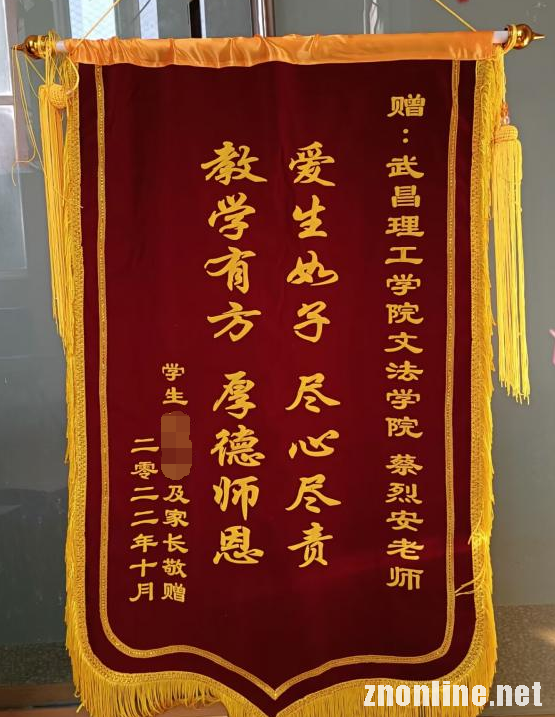 赠：武昌理工学院文法学院 蔡烈安老师
爱生如子 尽心尽责
教学有方 厚德师恩
学生 及家长敬赠
二零二二年十月
znonline.net